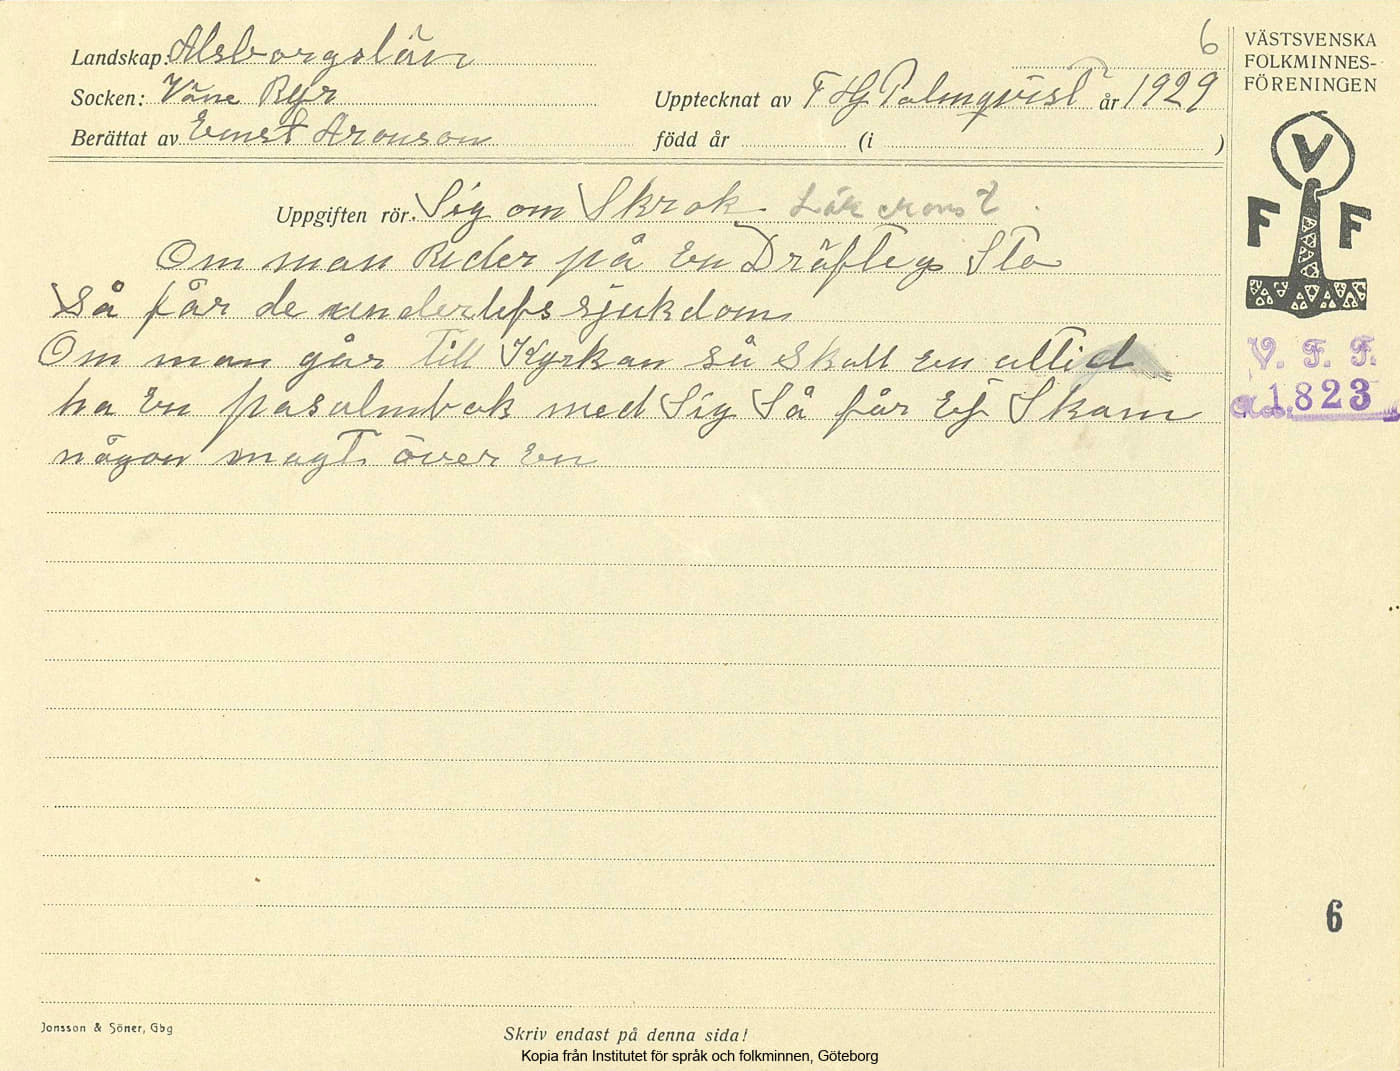 6
Landskap: Alsborgslän
Socken: Väne Ryr
Upptecknat av T Hj Palmqvist år 1929
Berättat av Ernst Aronson
född år (i )
VÄSTSVENSKA
FOLKMINNES-
FÖRENINGEN
V
F F
Uppgiften rör. Sig om Skrok
Om man Rider på En Dräfteg Sto
Så får de underlifs sjukdom
Om man går till Kyrkan så Skall en alltid
ha En pasalmbok med Sig Så får Ej Skam
någon magt över En
V. F. F.
1823
6
Jonsson & Söner, Gbg
Skriv endast på denna sida!
Kopia från Institutet för språk och folkminnen, Göteborg